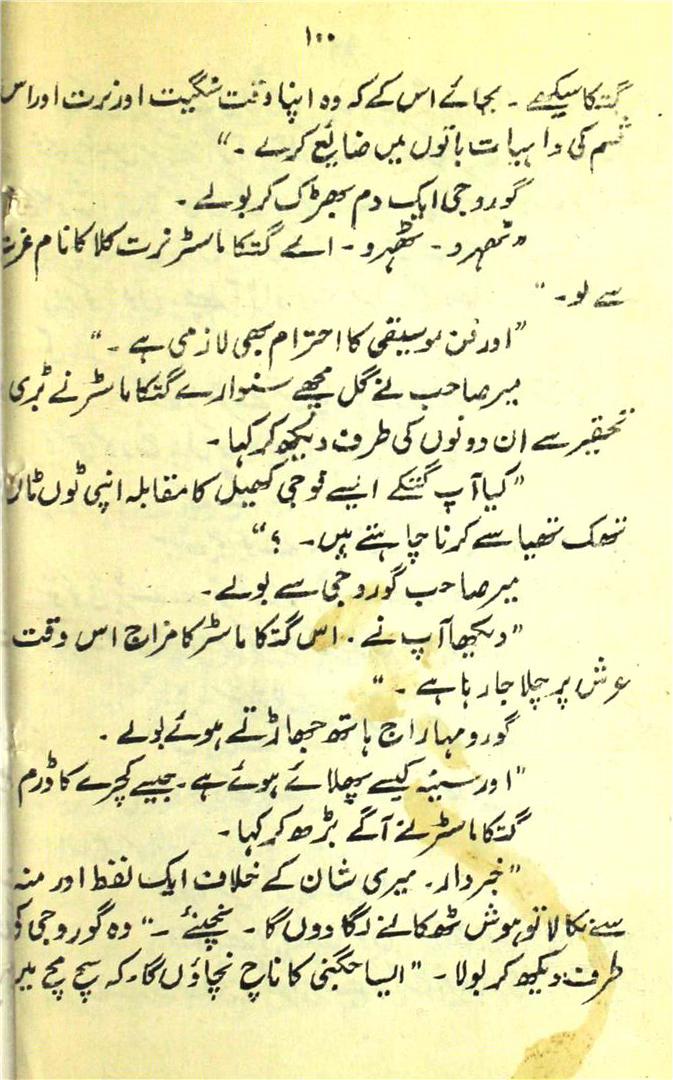 ۱۰۰
گتکا سیکھے ۔ بجائے اس کے کہ وہ اپنا وقت سنگیت اور نرت اور اس
قسم کی واہیات باتوں میں ضائع کرے ۔"
گورو جی ایک دم بھڑک کر بولے ۔
"ٹھہرو ۔ ٹھہرو ۔ اے گتکا ماسٹر نرت کلا کا نام عزت
سے لو ۔ "
"اور فن موسیقی کا احترام بھی لازمی ہے ۔ "
میر صاحب نے گل مچھے سنوارے گتکا ماسٹر نے بڑی
تحقیر سے ان دونوں کی طرف دیکھ کر کہا ۔
"کیا آپ گتکے ایسے فوجی کھیل کا مقابلہ اپنی ٹوں ٹاں
تھک تھیا سے کرنا چاہتے ہیں ۔ ؟"
میر صاحب گورو جی سے بولے ۔
"دیکھا آپ نے ۔ اس گتکا ماسٹر کا مزاج اس وقت
عرش پر چلا جا رہا ہے ۔ "
گورو مہاراج ہاتھ جھاڑتے ہوئے بولے ۔
"اور سینہ کیسے پھلائے ہوئے ہے ۔ جیسے کچرے کا ڈرم
گتکا ماسٹر نے آگے بڑھ کر کہا ۔
"خبردار ۔ میری شان کے خلاف ایک لفظ اور منہ
سے نکالا تو ہوش ٹھکانے لگا دوں گا ۔ نچنئے ۔" وہ گورو جی کی
طرف دیکھ کر بولا ۔ "ایسا جگنی کا ناچ نچاؤں گا ۔ کہ سچ مچ میر